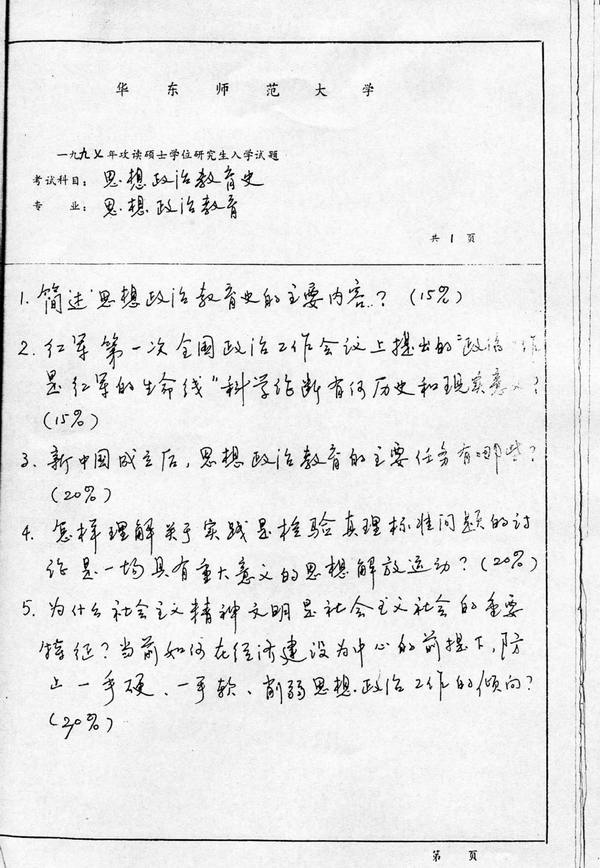 华东师范大学
一九九七年攻读硕士学位研究生入学试题
考试科目：思想政治教育史
专　业：思想政治教育
共 1 页
1. 简述思想政治教育史的主要内容？（15%）
2. 红军第一次全国政治工作会议上提出的"政治工作
是红军的生命线"科学论断有何历史和现实意义？
（15%）
3. 新中国成立后，思想政治教育的主要任务有哪些？
（20%）
4. 怎样理解关于实践是检验真理标准问题的讨
论是一场具有重大意义的思想解放运动？（20%）
5. 为什么社会主义精神文明是社会主义社会的重要
特征？当前如何在经济建设为中心的前提下，防
止一手硬、一手软、削弱思想政治工作的倾向？
（20%）
第　页